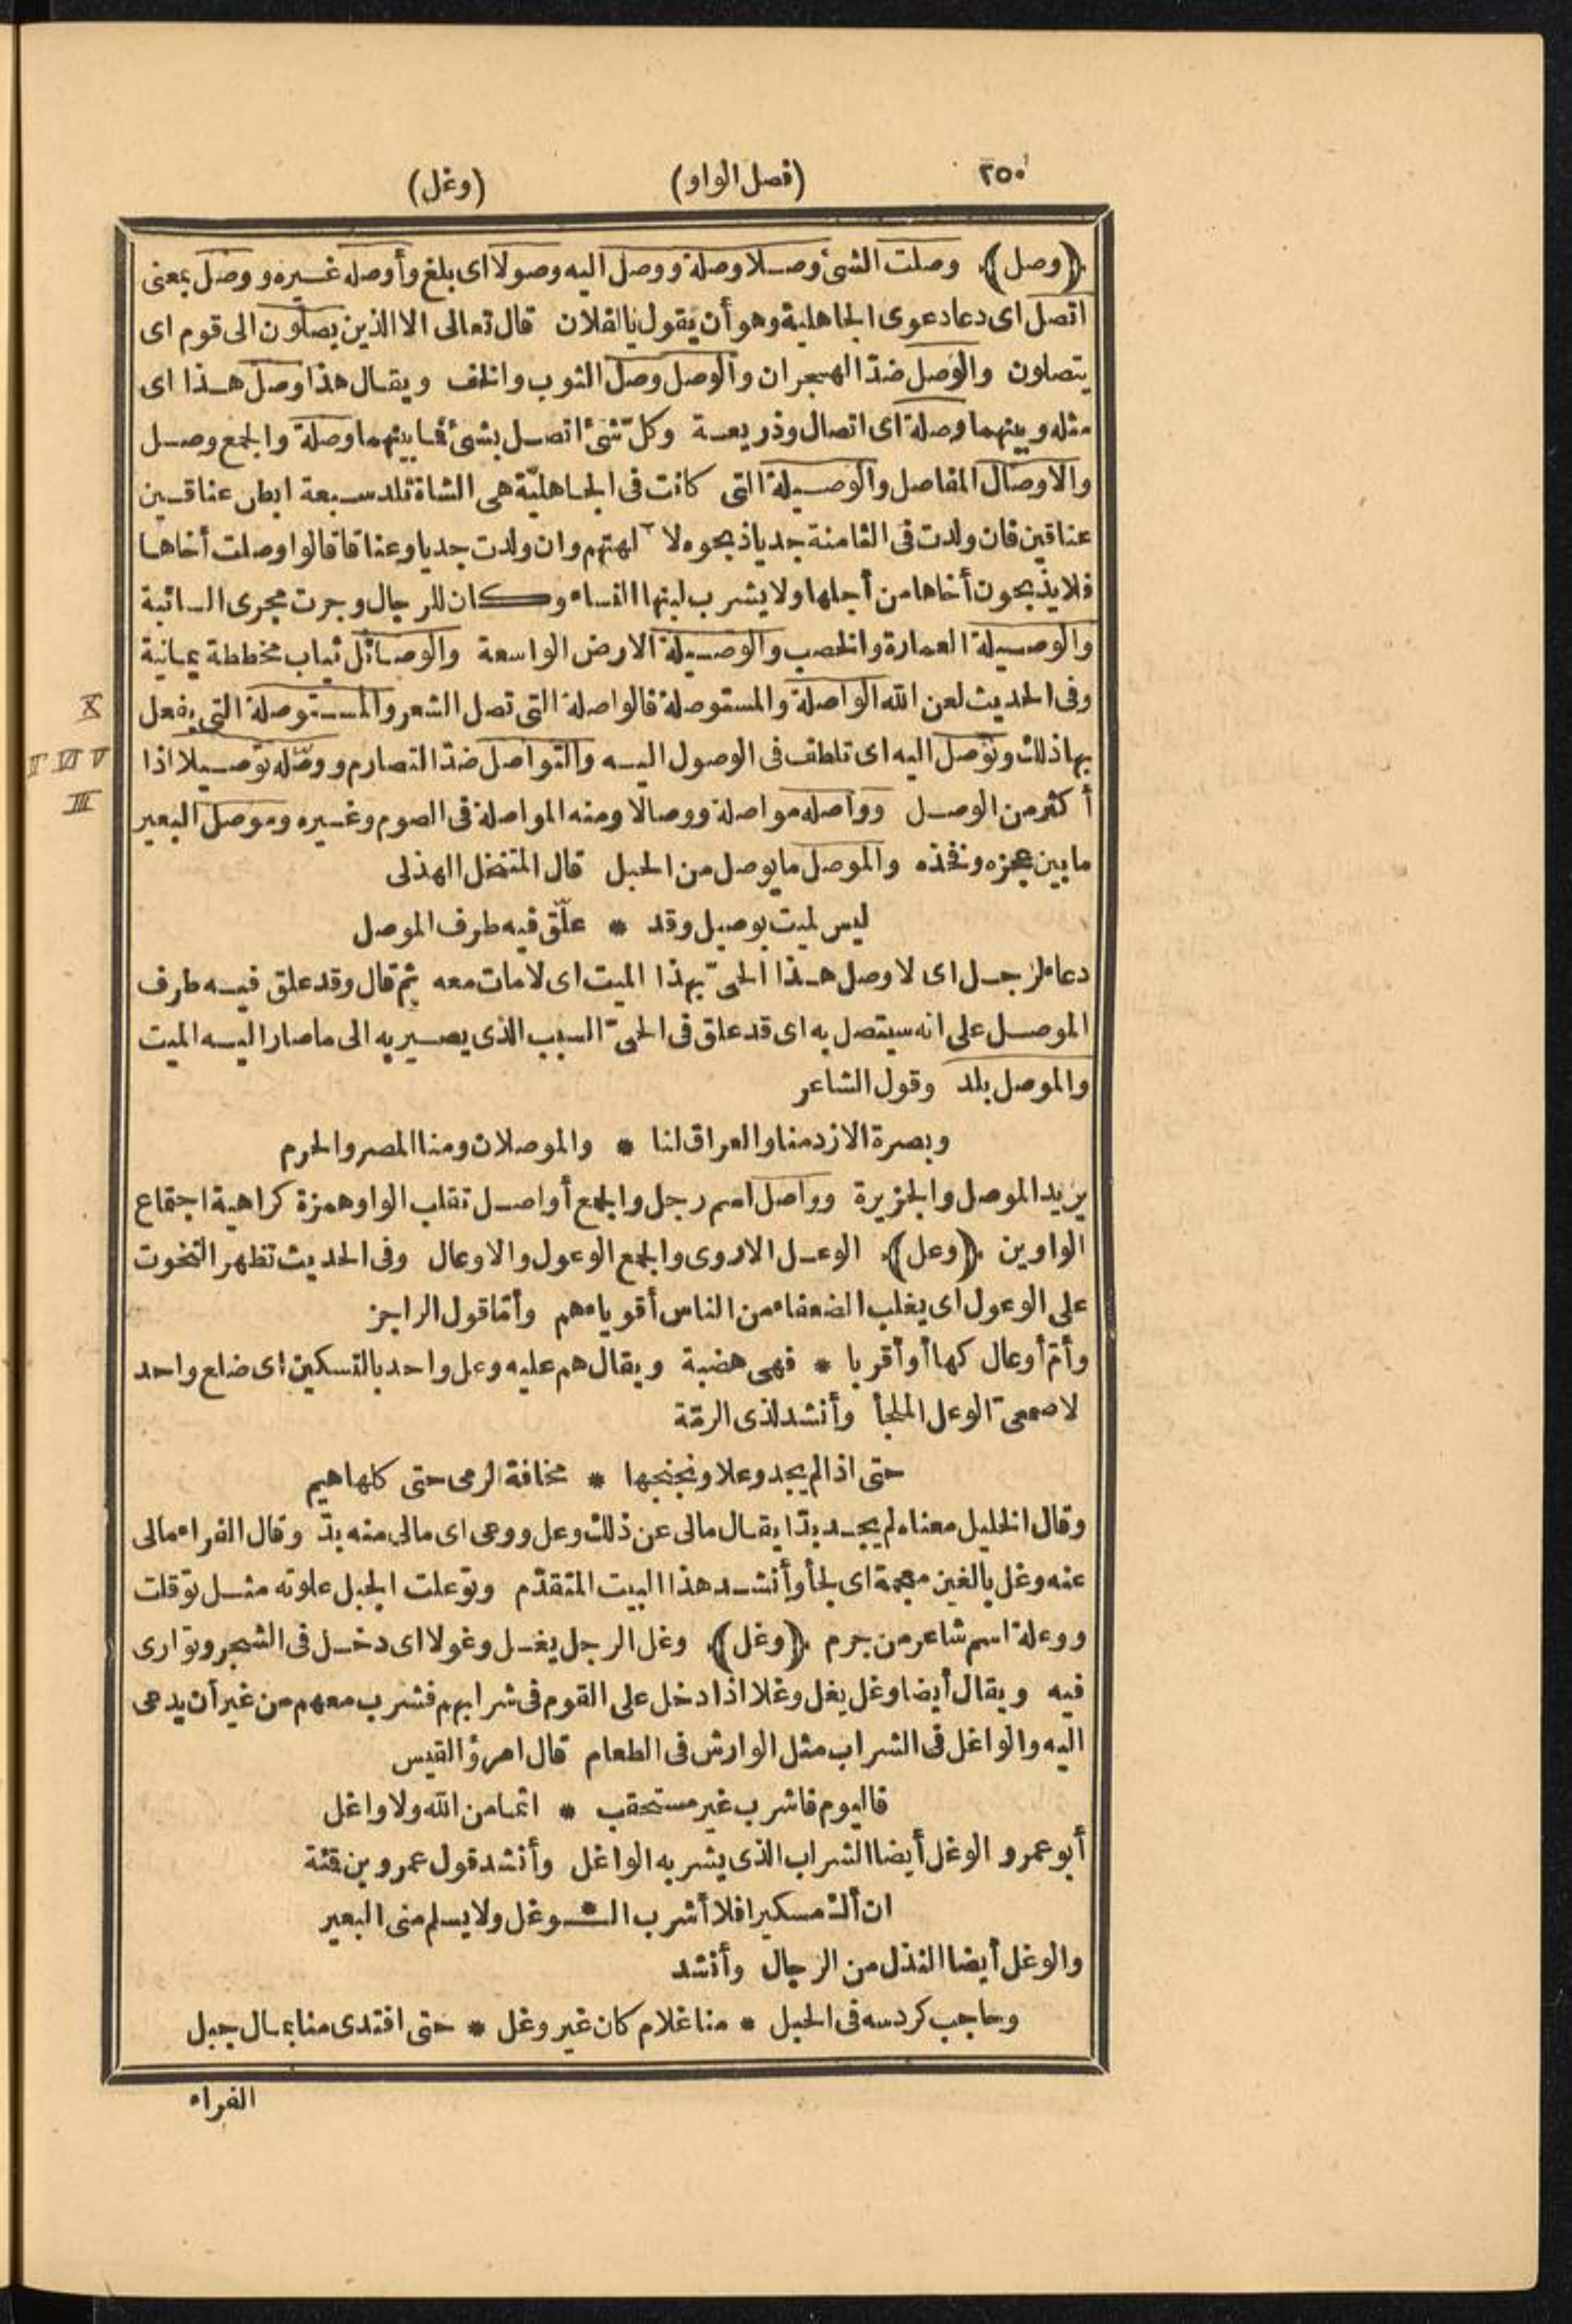 ٢٥٠ (فصل الواو) (وغل)
﴿وصل﴾ وصلت الشئ وصلا وصلة ووصل اليه وصولا اى بلغ وأوصله غيره ووصل بمعنى
اتصل اى دعا دعوى الجاهلية وهو أن يقول يالفلان قال تعالى الا الذين يصلون الى قوم اى
يتصلون والوصل ضدّ الهجران والوصل وصل الثوب والخف ويقال هذا وصل هذا اى
مثله وبينهما وصلة اى اتصال وذريعة وكلّ شئ اتصل بشئ فما بينهما وصلة والجمع وصل
والاوصال المفاصل والوصيلة التى كانت فى الجاهليّة هى الشاة تلد سبعة ابطن عناقين
عناقين فان ولدت فى الثامنة جديا ذبحوه لآلهتهم وان ولدت جديا وعناقا قالوا وصلت أخاها
فلا يذبحون أخاها من أجلها ولا يشرب لبنها النساء وكان للرجال وجرت مجرى السائبة
والوصيلة العمارة والخصب والوصيلة الارض الواسعة والوصائل ثياب مخططة يمانية
وفى الحديث لعن الله الواصلة والمستوصلة فالواصلة التى تصل الشعر والمستوصلة التى يفعل X
بها ذلك وتوصل اليه اى تلطف فى الوصول اليه والتواصل ضدّ التصارم ووصّله توصيلا اذا V VI II
أكثر من الوصل وواصله مواصلة ووصالا ومنه المواصلة فى الصوم وغيره وموصل البعير III
ما بين عجزه وفخذه والموصل ما يوصل من الحبل قال المتنخل الهذلى
ليس لميت بوصيل وقد * علّق فيه طرف الموصل
دعاء لرجل اى لا وصل هذا الحىّ بهذا الميت اى لا مات معه ثم قال وقد علق فيه طرف
الموصل على انه سيتصل به اى قد علق فى الحىّ السبب الذى يصير به الى ما صار اليه الميت
والموصل بلد وقول الشاعر
وبصرة الازد منا والعراق لنا * والموصلان ومنا المصر والحرم
يريد الموصل والجزيرة وواصل اسم رجل والجمع أواصل تقلب الواو همزة كراهية اجتماع
الواوين ﴿وعل﴾ الوعل الاروى والجمع الوعول والاوعال وفى الحديث تظهر التحوت
على الوعول اى يغلب الضعفاء من الناس أقوياءهم وأمّا قول الراجز
وأمّ أوعال كها أو أقربا * فهى هضبة ويقال هم عليه وعل واحد بالتسكين اى ضلع واحد
لاصمعىّ الوعل الملجأ وأنشد لذى الرمّة
حتى اذا لم يجد وعلا ونجنجها * مخافة الرمى حتى كلها هيم
وقال الخليل معناه لم يجد بدّا يقال مالى عن ذلك وعل ووعى اى مالى منه بدّ وقال الفراء مالى
عنه وغل بالغين معجمة اى لجأ وأنشد هذا البيت المتقدّم وتوعلت الجبل علوته مثل توقلت
ووعلة اسم شاعر من جرم ﴿وغل﴾ وغل الرجل يغل وغولا اى دخل فى الشجر وتوارى
فيه ويقال أيضا وغل يغل وغلا اذا دخل على القوم فى شرابهم فشرب معهم من غير أن يدعى
اليه والواغل فى الشراب مثل الوارش فى الطعام قال امرؤ القيس
فاليوم فاشرب غير مستحقب * اثما من الله ولا واغل
أبو عمرو الوغل أيضا الشراب الذى يشربه الواغل وأنشد قول عمرو بن قمئة
ان ألك مسكيرا فلا أشرب الـ*ـوغل ولا يسلم منى البعير
والوغل أيضا النذل من الرجال وأنشد
وحاجب كردسه فى الحبل * منا غلام كان غير وغل * حتى افتدى منا بمال جبل
الفراء